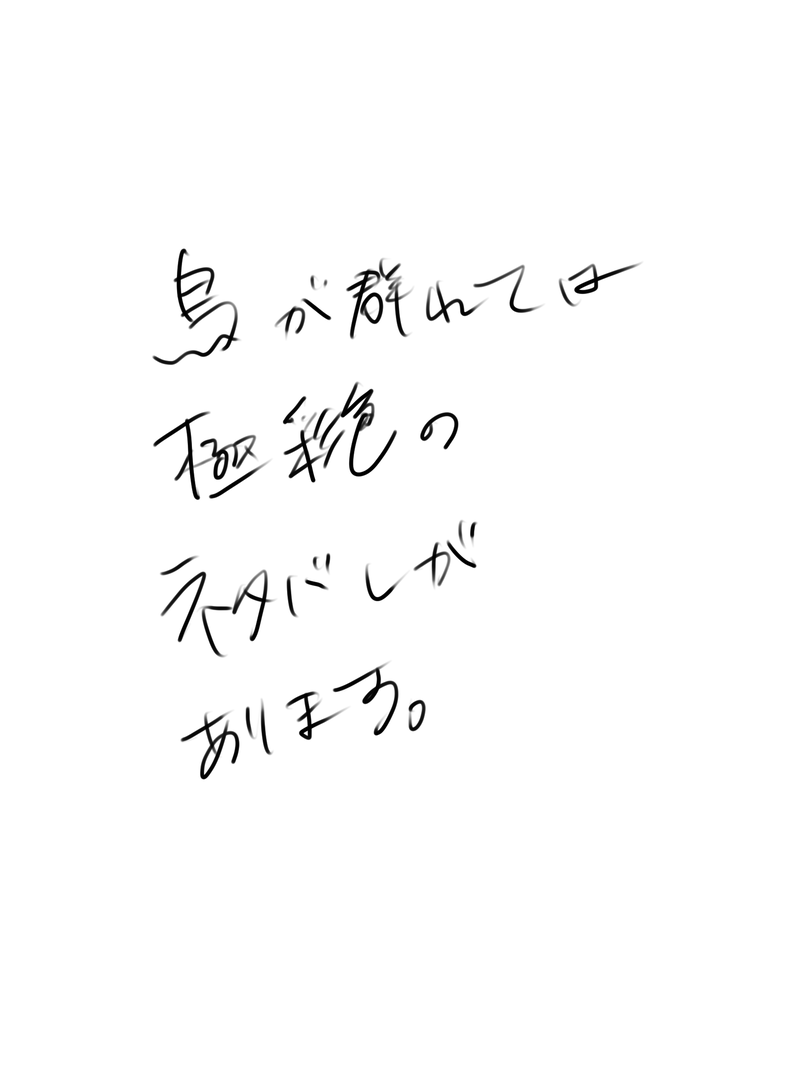 鳥が群れては
極彩色の
ネタバレが
あります。